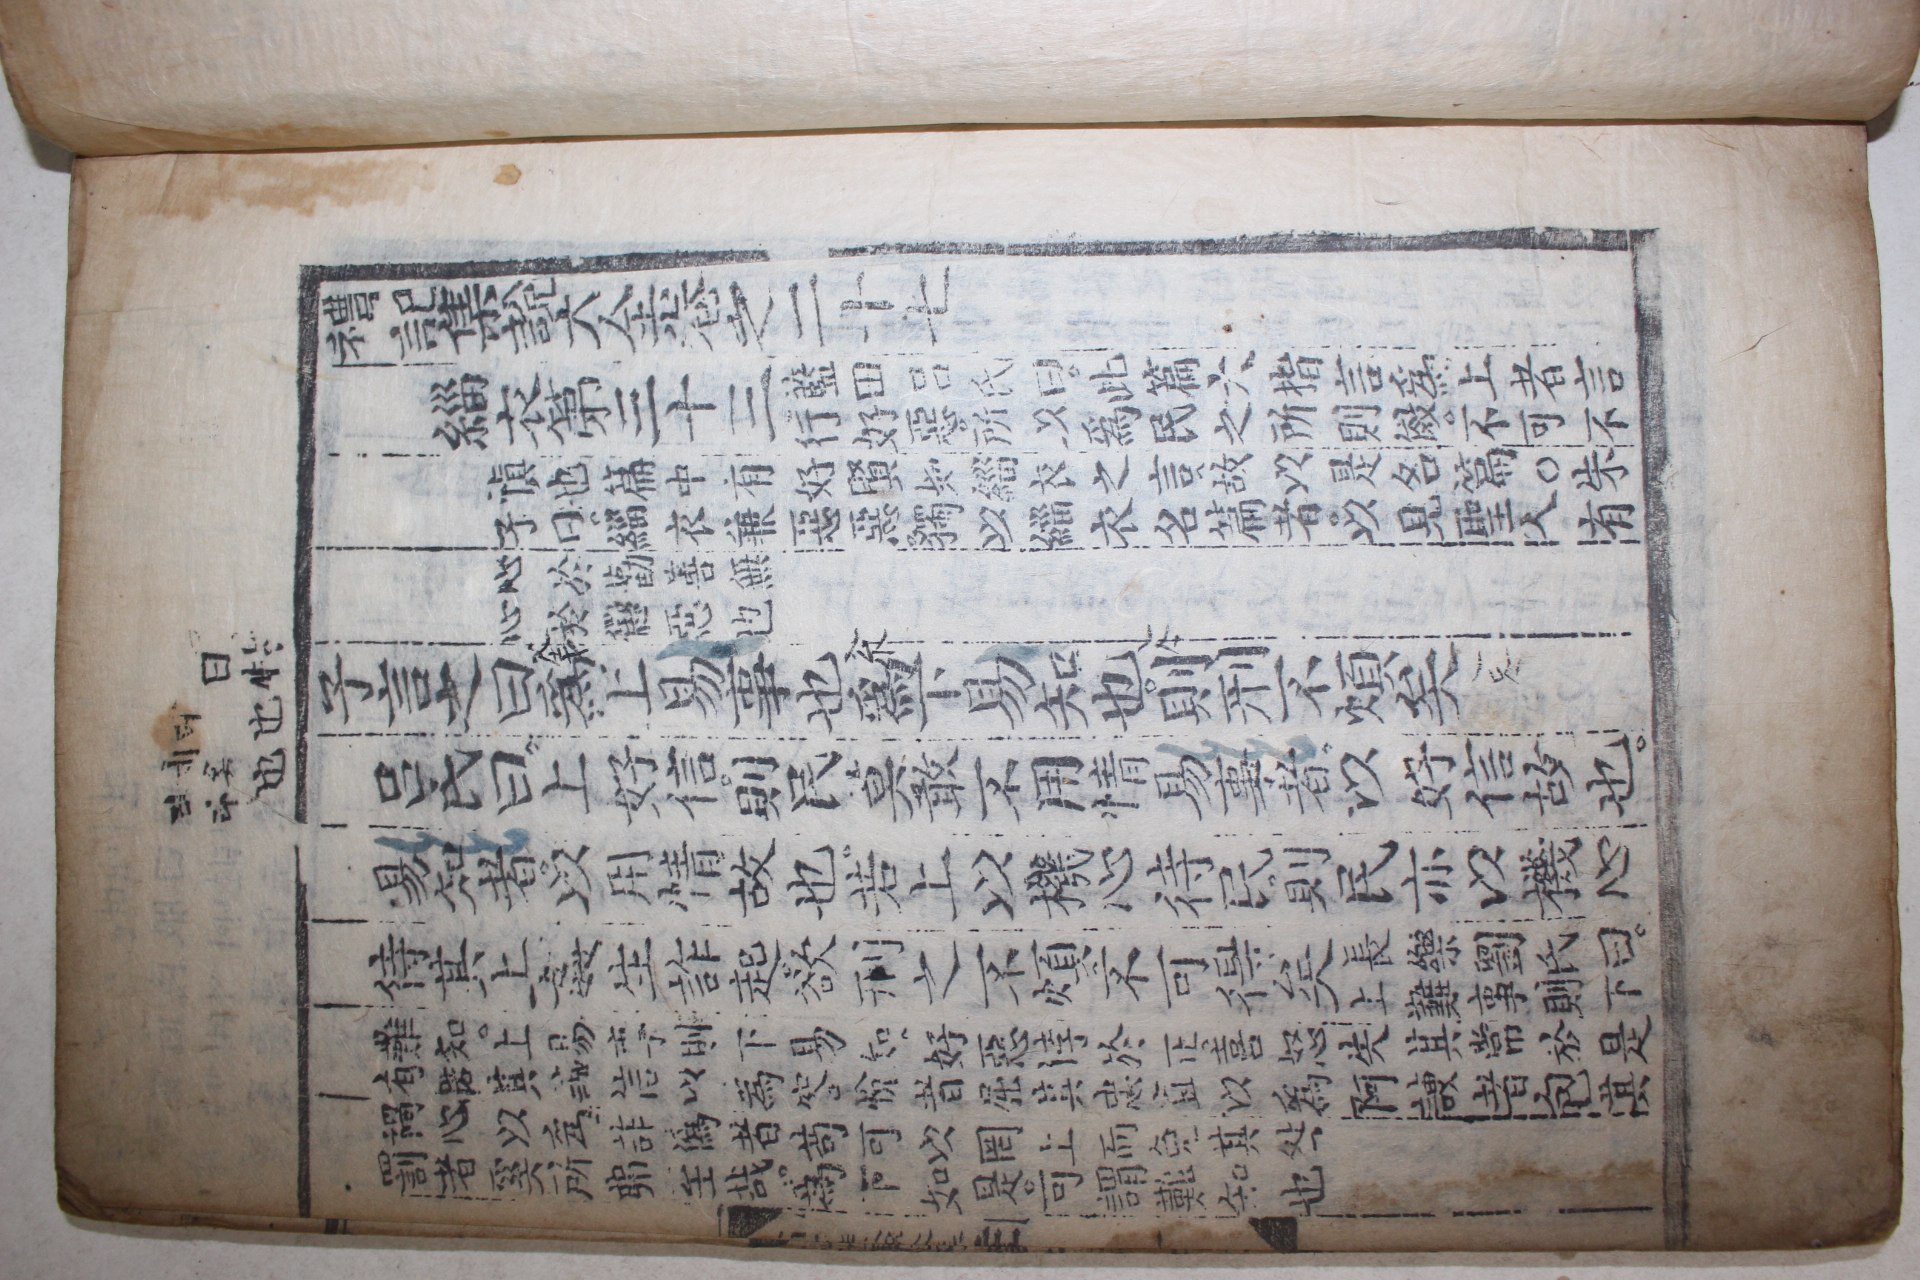 禮記集說大全卷之二十七
緇衣第三十三
藍田呂氏曰。此篇六指言爲上者言
行好惡。所以爲民之所則傚。不可不
愼也篇中有好賢如緇衣之言。故以是名篇。○朱
子曰。緇衣兼惡惡獨以緇衣名篇者。以見聖人有
心於勸善無
心於懲惡也
子言之曰爲上易事也爲下易知也。則刑不煩矣
呂氏曰。上好信。則民莫敢不用情易事者。以好信故也。
易知者。以用情故也。若上以機心待民。則民亦以機心
待其上姦生詐起。欲刑之不煩。不可得矣
長樂劉氏曰。
上難事則下
難知。上易事則下易知。好惡悖於正。喜怒失其常於是
有節其誠信以爲容悅者屈其忠直以爲阿諛者包其
禍心以爲詐僞者苟可以罔上而免其
罰者奚所弗至哉。爲下如是。可謂難知也
曰
也
也